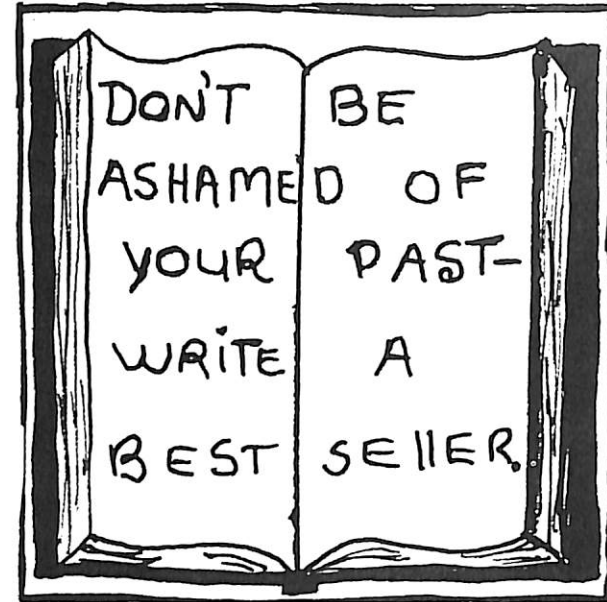 DON'T BE
ASHAMED OF
YOUR PAST-
WRITE A
BEST SELLER.